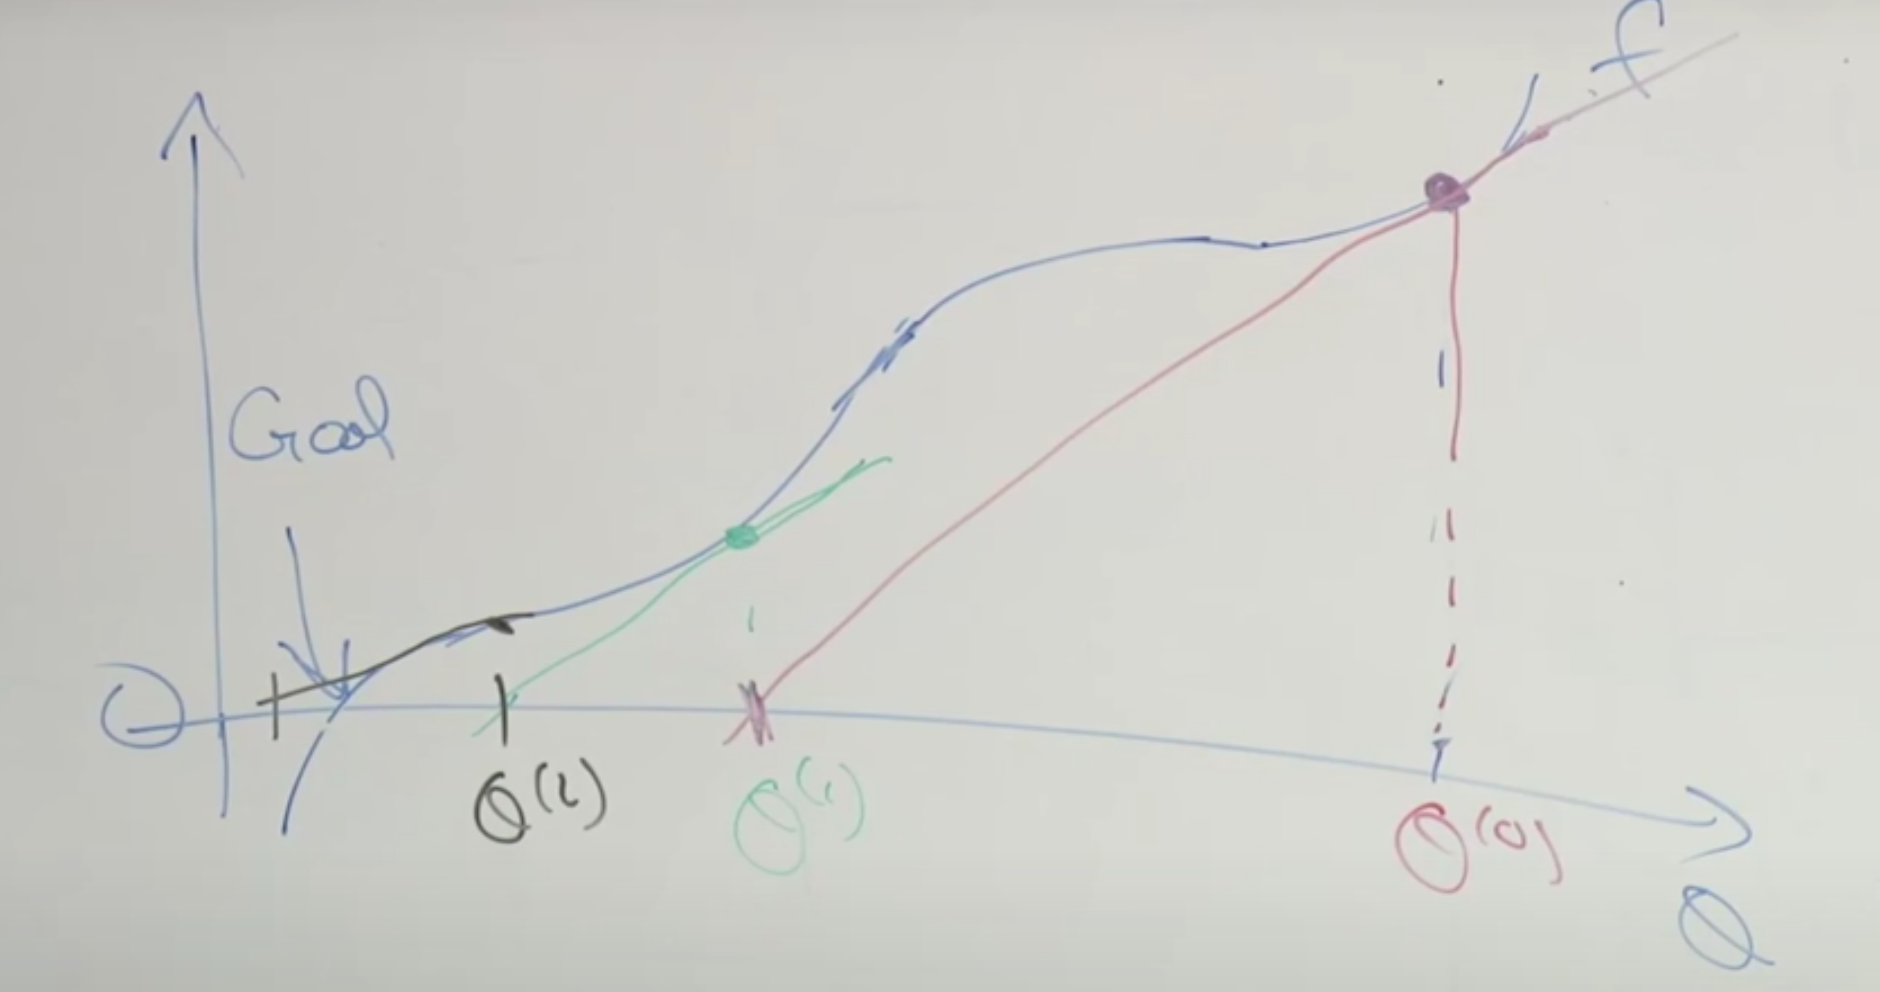 f
Goal
0
θ^(2)
θ^(1)
θ^(0)
θ